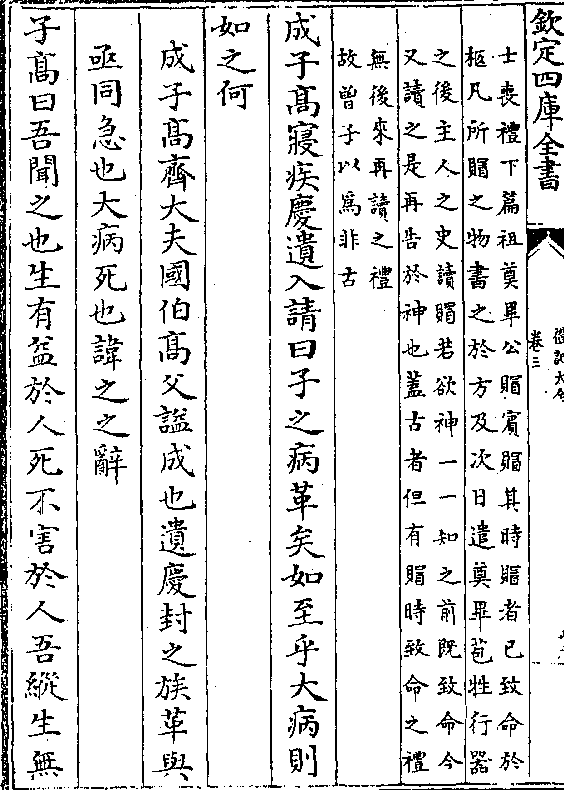 欽定四庫全書
卷三
士喪禮下篇祖奠畢公賵賓賵其時賵者已致命於
柩凡所賵之物書之於方及次日遣奠畢苞牲行器
之後主人之史讀賵若欲神一一知之前既致命今
又讀之是再告於神也蓋古者但有賵時致命之禮
無後來再讀之禮
故曾子以爲非古
成子髙寢疾慶遺入請曰子之病革矣如至乎大病則
如之何
成子髙齊大夫國伯髙父諡成也遺慶封之族革與
亟同急也大病死也諱之之辭
子髙曰吾聞之也生有益於人死不害於人吾縱生無